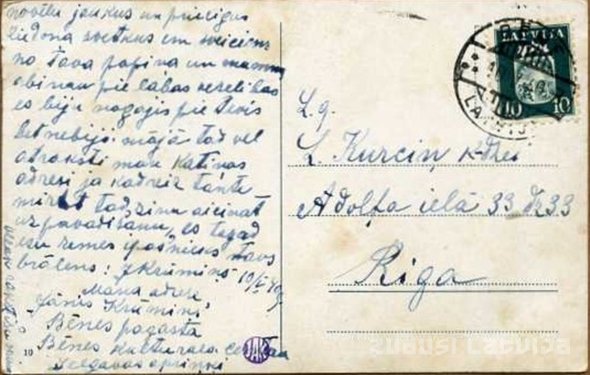 novēlu jaukus un priecīgus
Ziedoņa svētkus em sveiciens
no Tava papiņa un mammas
abinau pie labas veselības
es biju nogājis pie Tevis
bet nebiji mājā tad vēl
atraksti man Katiņas
adresi ja kādreiz tante
mirst tad zinu aicināt
uz pavadīšanu, es tagad
esu zemes īpašnieks Tavs
brālens: J Krūmiņš 10/V
Mana adrese,
Jānis Krūmiņš
Bēnes pagasta
Bēnes
Jelgavas apriņķī
10
JAK
LATVIJA
10 10
L. g.
L. Kurciņ k-dzei
Ādolfa ielā 33 dz 33
Rīgā
ZUDUSI LATVIJA